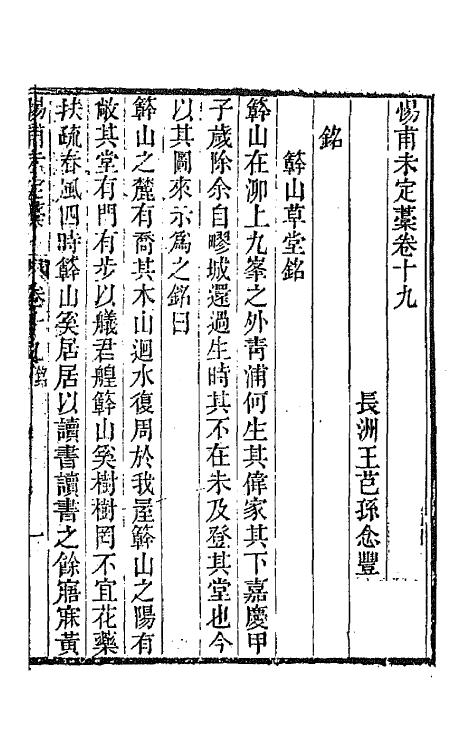 惕甫未定藁卷十九
長洲王芑孫念豐
銘
簳山草堂銘
簳山在泖上九峯之外靑浦何生其偉家其下嘉慶甲
子歲除余自疁城還過生時其不在未及登其堂也今
以其圖來示爲之銘曰
簳山之麓有喬其木山迴水復周於我屋簳山之陽有
敞其堂有門有步以艤君艎簳山奚樹樹罔不宜花藥
扶疏春風四時簳山奚居居以讀書讀書之餘寤寐黃
惕甫未定藁 卷十九 銘 一